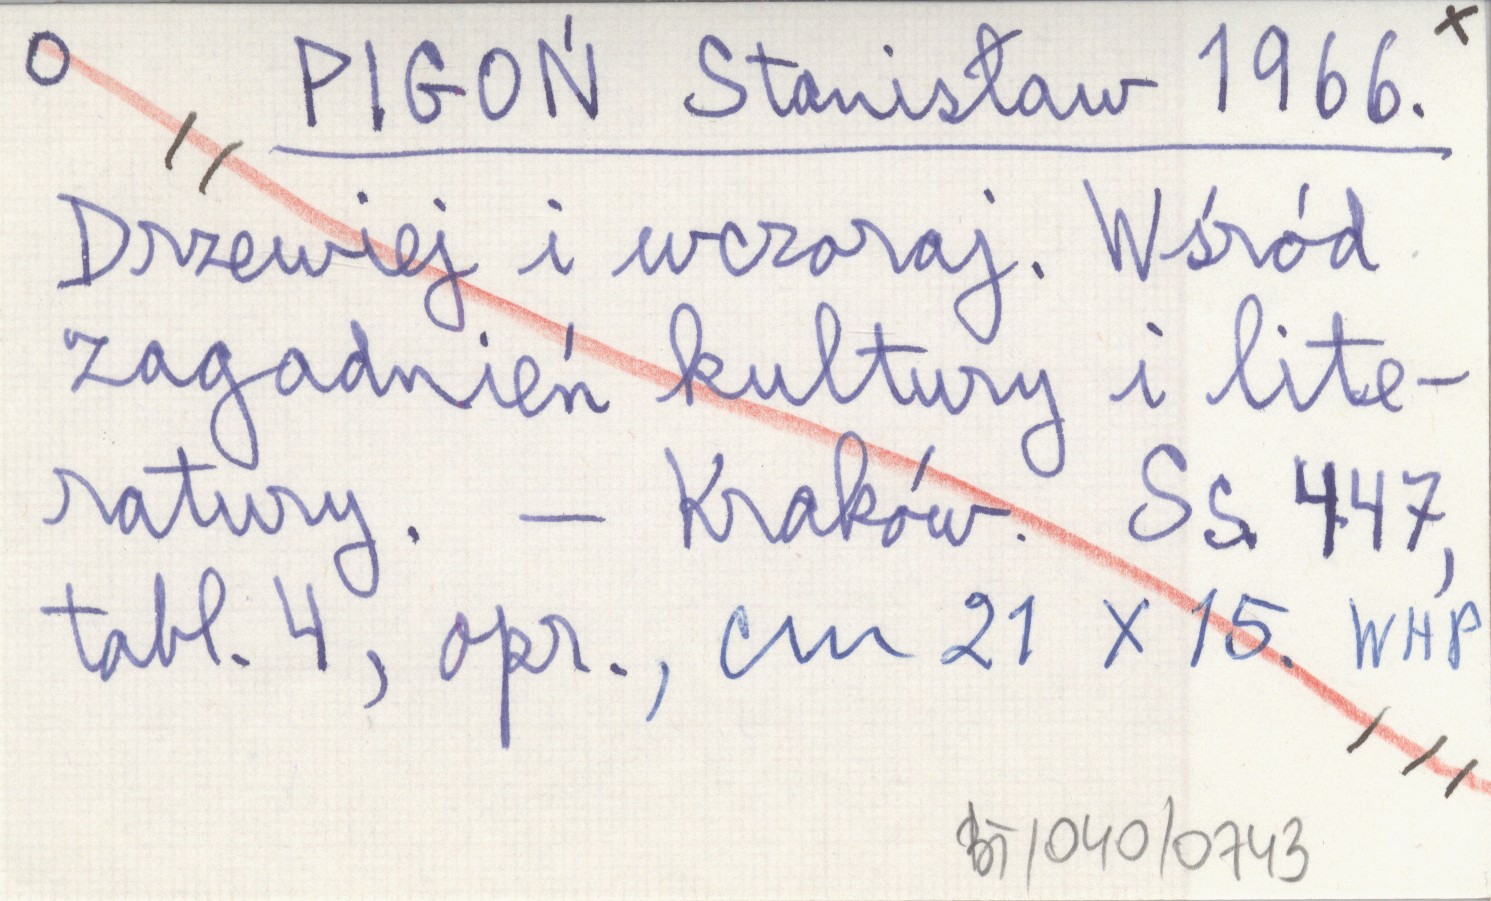 O PIGOŃ Stanisław 1966. x
Drzewiej i wczoraj. Wśród
zagadnień kultury i lite-
ratury. — Kraków. Ss. 447,
tabl. 4, opr., cm 21 x 15. WHP
BT/040/0743